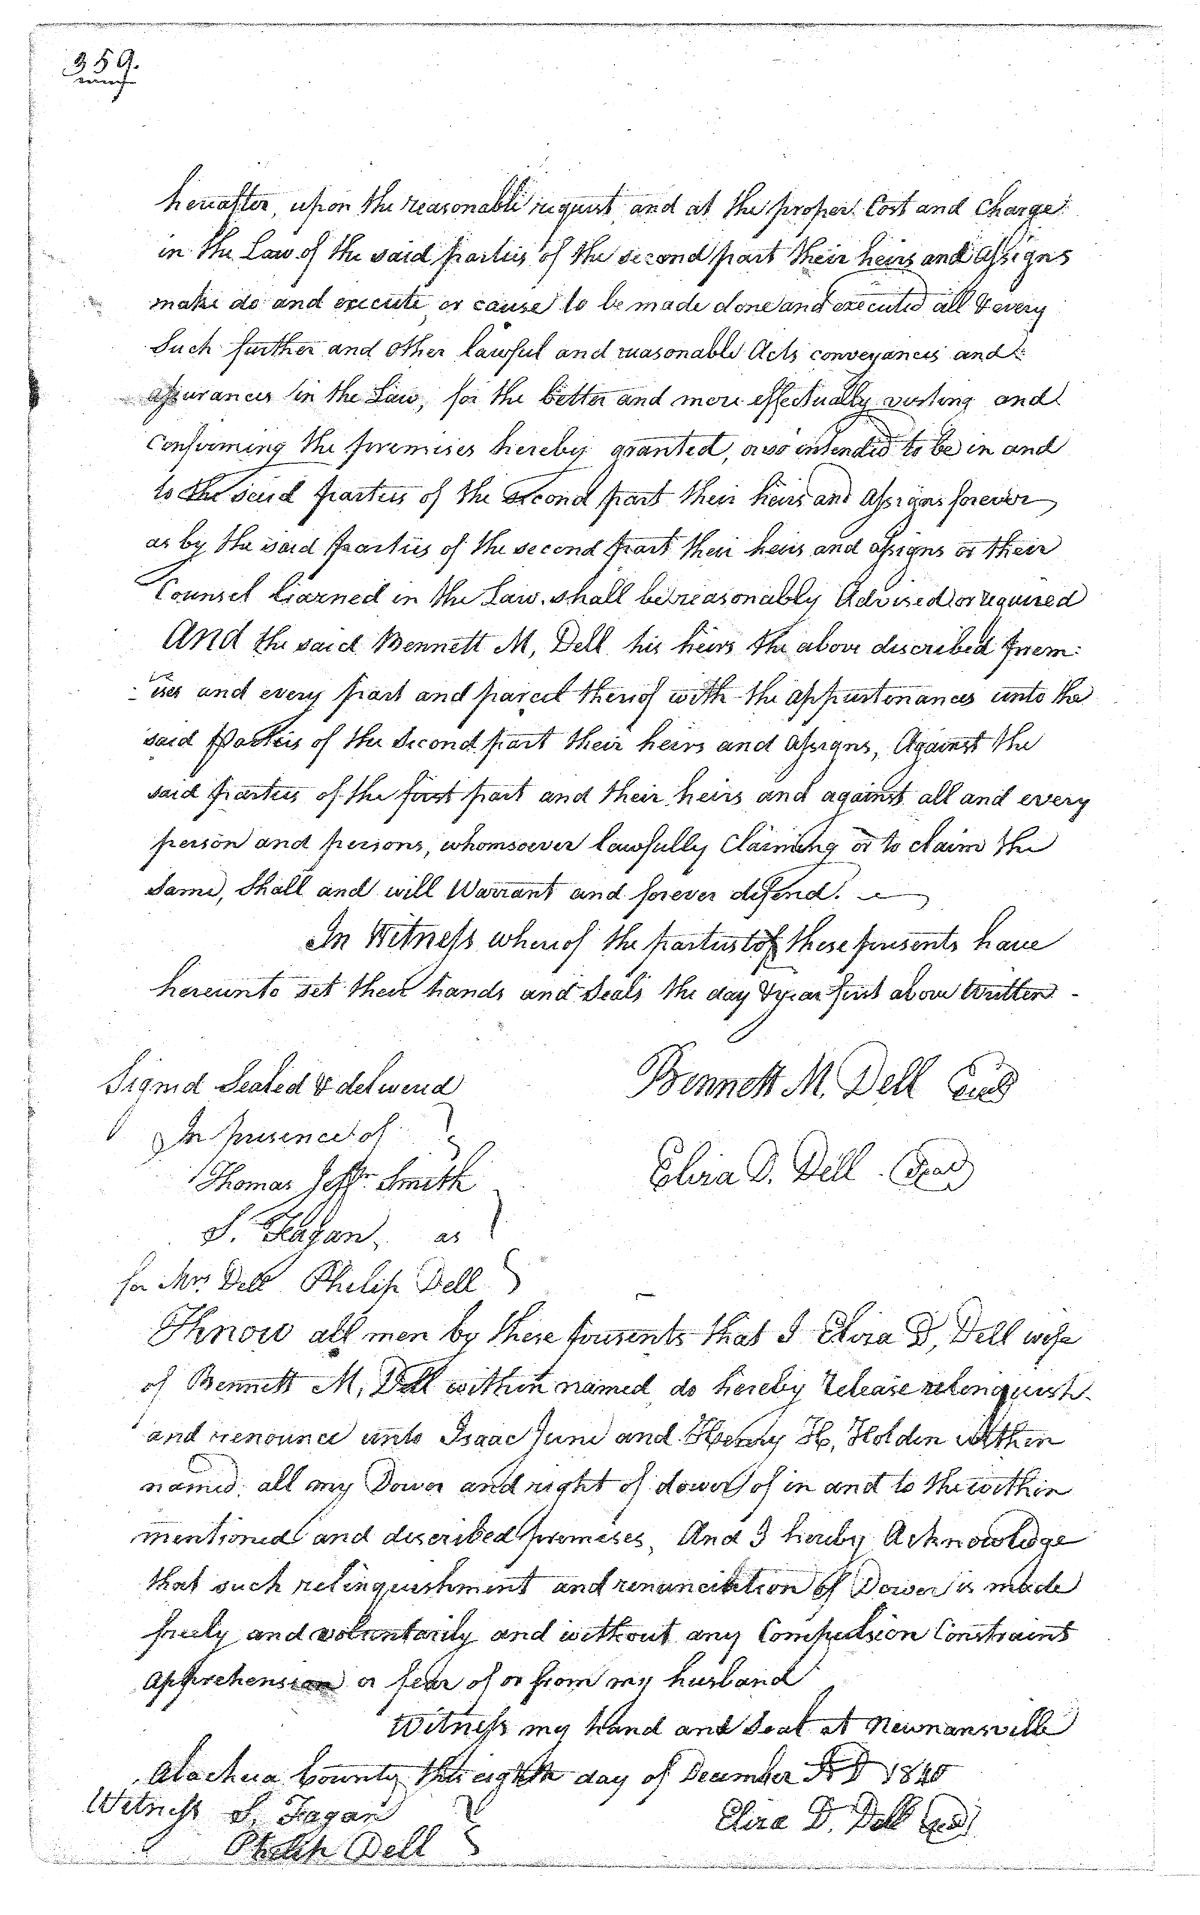 359.
hereafter, upon the reasonable request, and at the proper Cost and Charge
in the Law of the said parties of the second part their heirs and Assigns
make do and execute, or cause to be made done and executed all & every
Such further and other lawful and reasonable Acts conveyances and
assurances in the Law, for the better and more effectually vesting and
Confirming the premises hereby granted, or so intended to be in and
to the said parties of the second part their heirs and Assigns forever
as by the said parties of the second part their heirs and assigns or their
Counsel learned in the Law shall be reasonably Advised or required
And the said Bennett M, Dell his heirs the above described prem:
:ises and every part and parcel thereof with the appurtenances unto the
said Parties of the Second part their heirs and Assigns, Against the
said parties of the first part and their heirs and against all and every
person and persons, whomsoever lawfully Claiming or to claim the
Same, Shall and will Warrant and forever defend.
In Witness whereof the parties to these presents have
hereunto set their hands and Seals the day & year first above Written -
Signed Sealed & delivered
In presence of
Thomas Jeffn. Smith
S. Fagan, as
for Mrs Dell Philip Dell
Bennett M. Dell Seal
Eliza D. Dell Seal
Know all men by these presents that I Eliza D, Dell wife
of Bennett M, Dell within named, do hereby release relinquish
and renounce unto Isaac June and Henry H, Holden within
named, all my Dower and right of dower of in and to the within
mentioned and described premises, And I hereby Acknowledge
that such relinquishment and renunciation of Dower is made
freely and voluntarily and without any Compulsion Constraint
apprehension or fear of or from my husband
Witness my hand and Seal at Newnansville
Alachua County this eighth day of December A D 1840
Witness S. Fagan
Philip Dell
Eliza D. Dell Seal